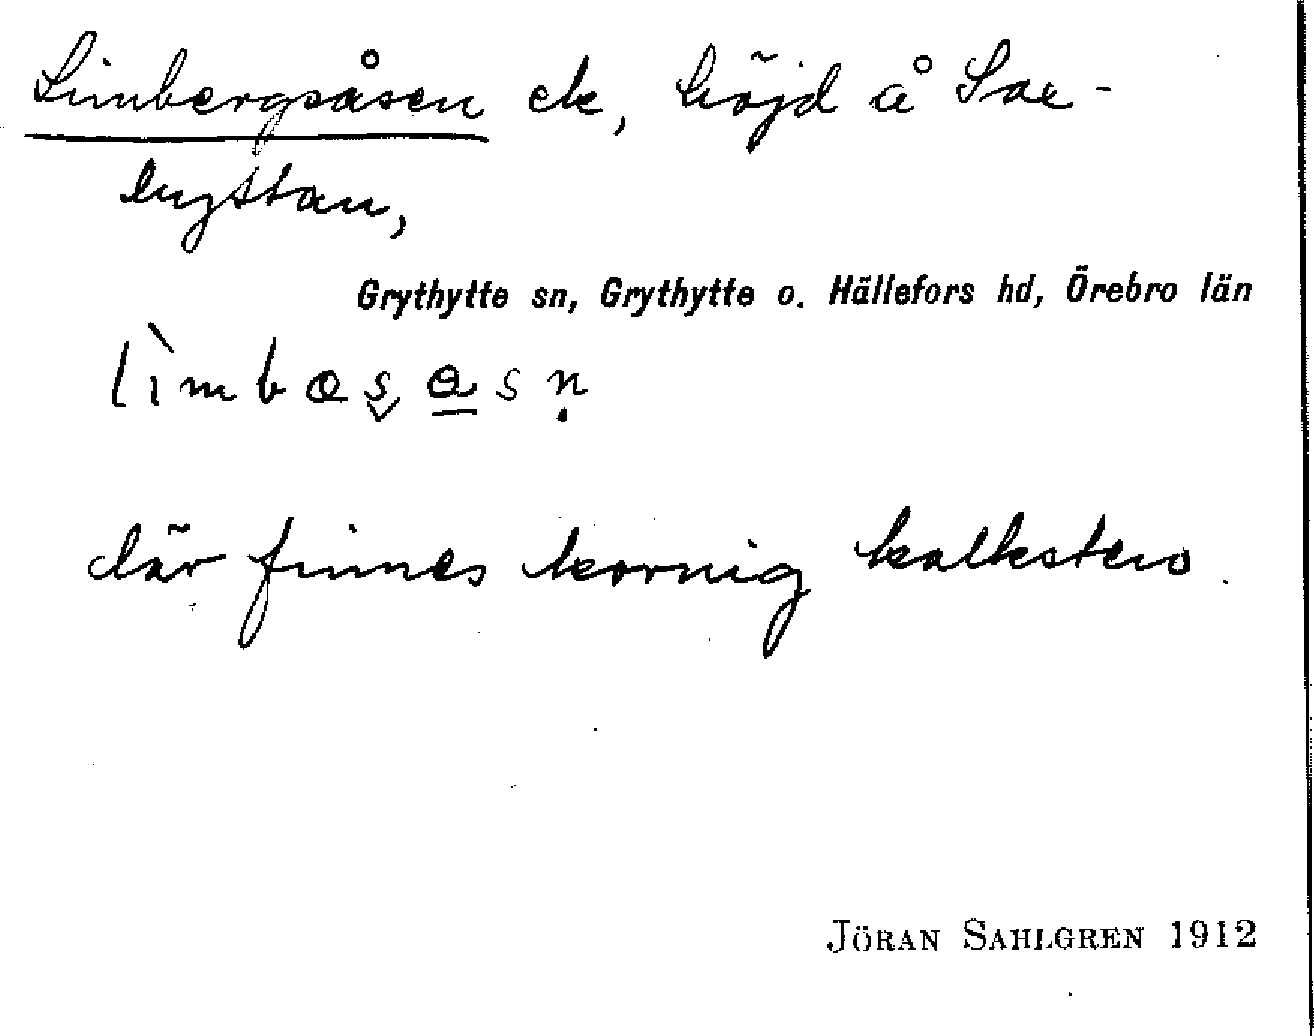 Limbergsåsen ek, höjd å Sax-
hyttan,
Grythytte sn, Grythytte o. Hällefors hd, Örebro län
där finnes kornig kalksten.
JÖRAN SAHLGREN 1912